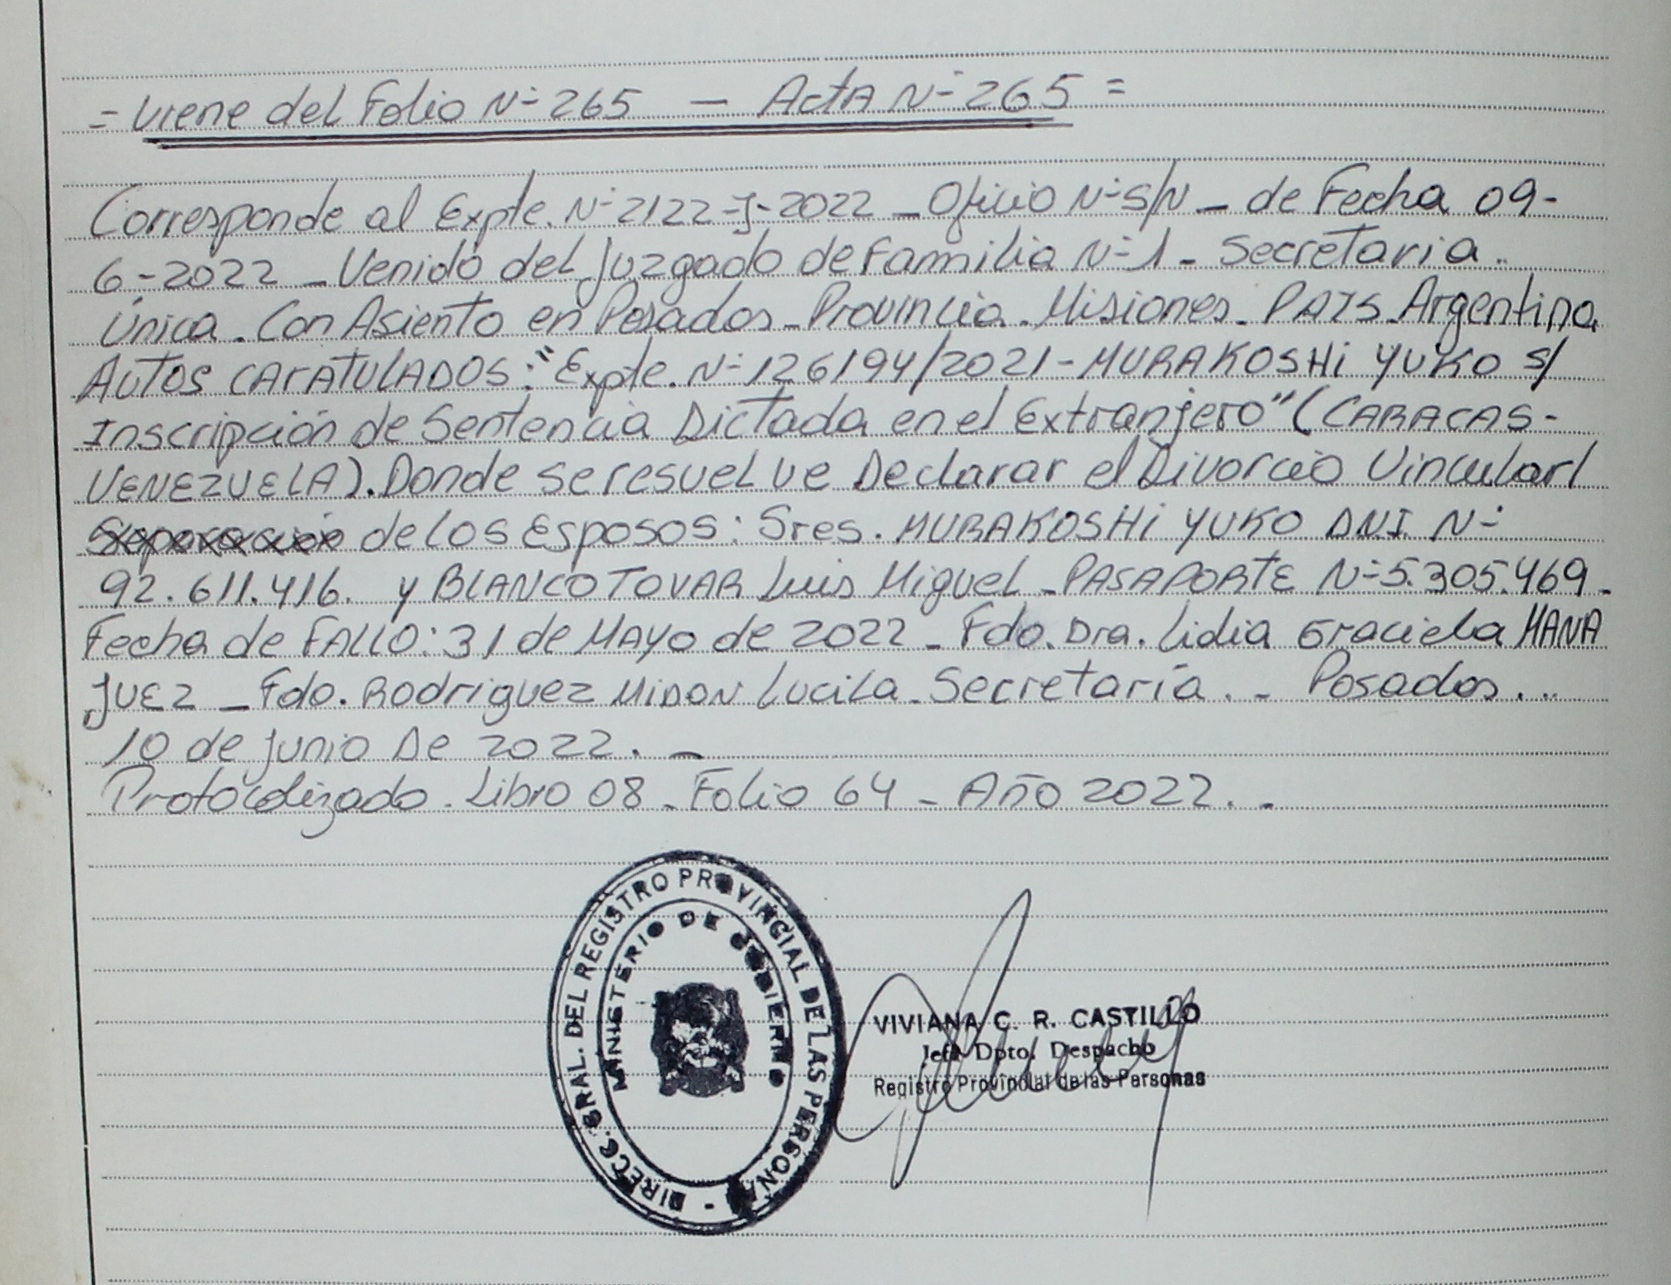 = Viene del Folio Nº 265 — Acta Nº 265 =
Corresponde al Expte. Nº 2122-J-2022 _ Oficio Nº S/N _ de Fecha 09-
6-2022 _ Venido del Juzgado de Familia Nº 1 - Secretaria.
Única. Con Asiento en Posadas - Provincia. Misiones. PAIS Argentina
AUTOS CARATULADOS: "Expte. Nº 126194/2021 - MURAKOSHI YUKO S/
Inscripción de Sentencia Dictada en el Extranjero" (CARACAS-
VENEZUELA). Donde se resuelve Declarar el Divorcio Vincular/
Separación de los Esposos: Sres. MURAKOSHI YUKO DNI. Nº
92.611.416. y BLANCO TOVAR Luis Miguel - PASAPORTE Nº 5.305.469 -
Fecha de FALLO: 31 de MAYO de 2022 - Fdo. Dra. Lidia Graciela MANA
JUEZ _ Fdo. Rodriguez MIDON Lucila - Secretaría. - Posadas...
10 de Junio De 2022. -
Protocolizado. Libro 08 - Folio 64 - Año 2022. -
DIRECC. GRAL. DEL REGISTRO PROVINCIAL DE LAS PERSONAS -
MINISTERIO DE GOBIERNO
VIVIANA C. R. CASTILLO
Jefa Dpto. Despacho
Registro Provincial de las Personas